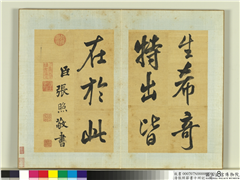 生希奇
特出皆
在於此
臣張照敬書